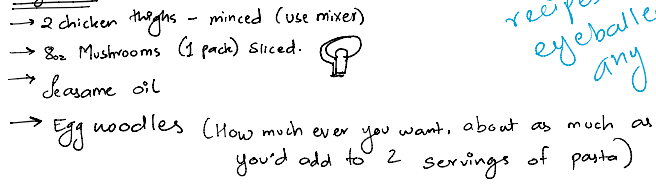 → 2 chicken thighs - minced (use mixer)
→ 8oz Mushrooms (1 pack) sliced.
→ Seasame oil
→ Egg noodles (How much ever you want, about as much as
you'd add to 2 servings of pasta)
eyeballe
any